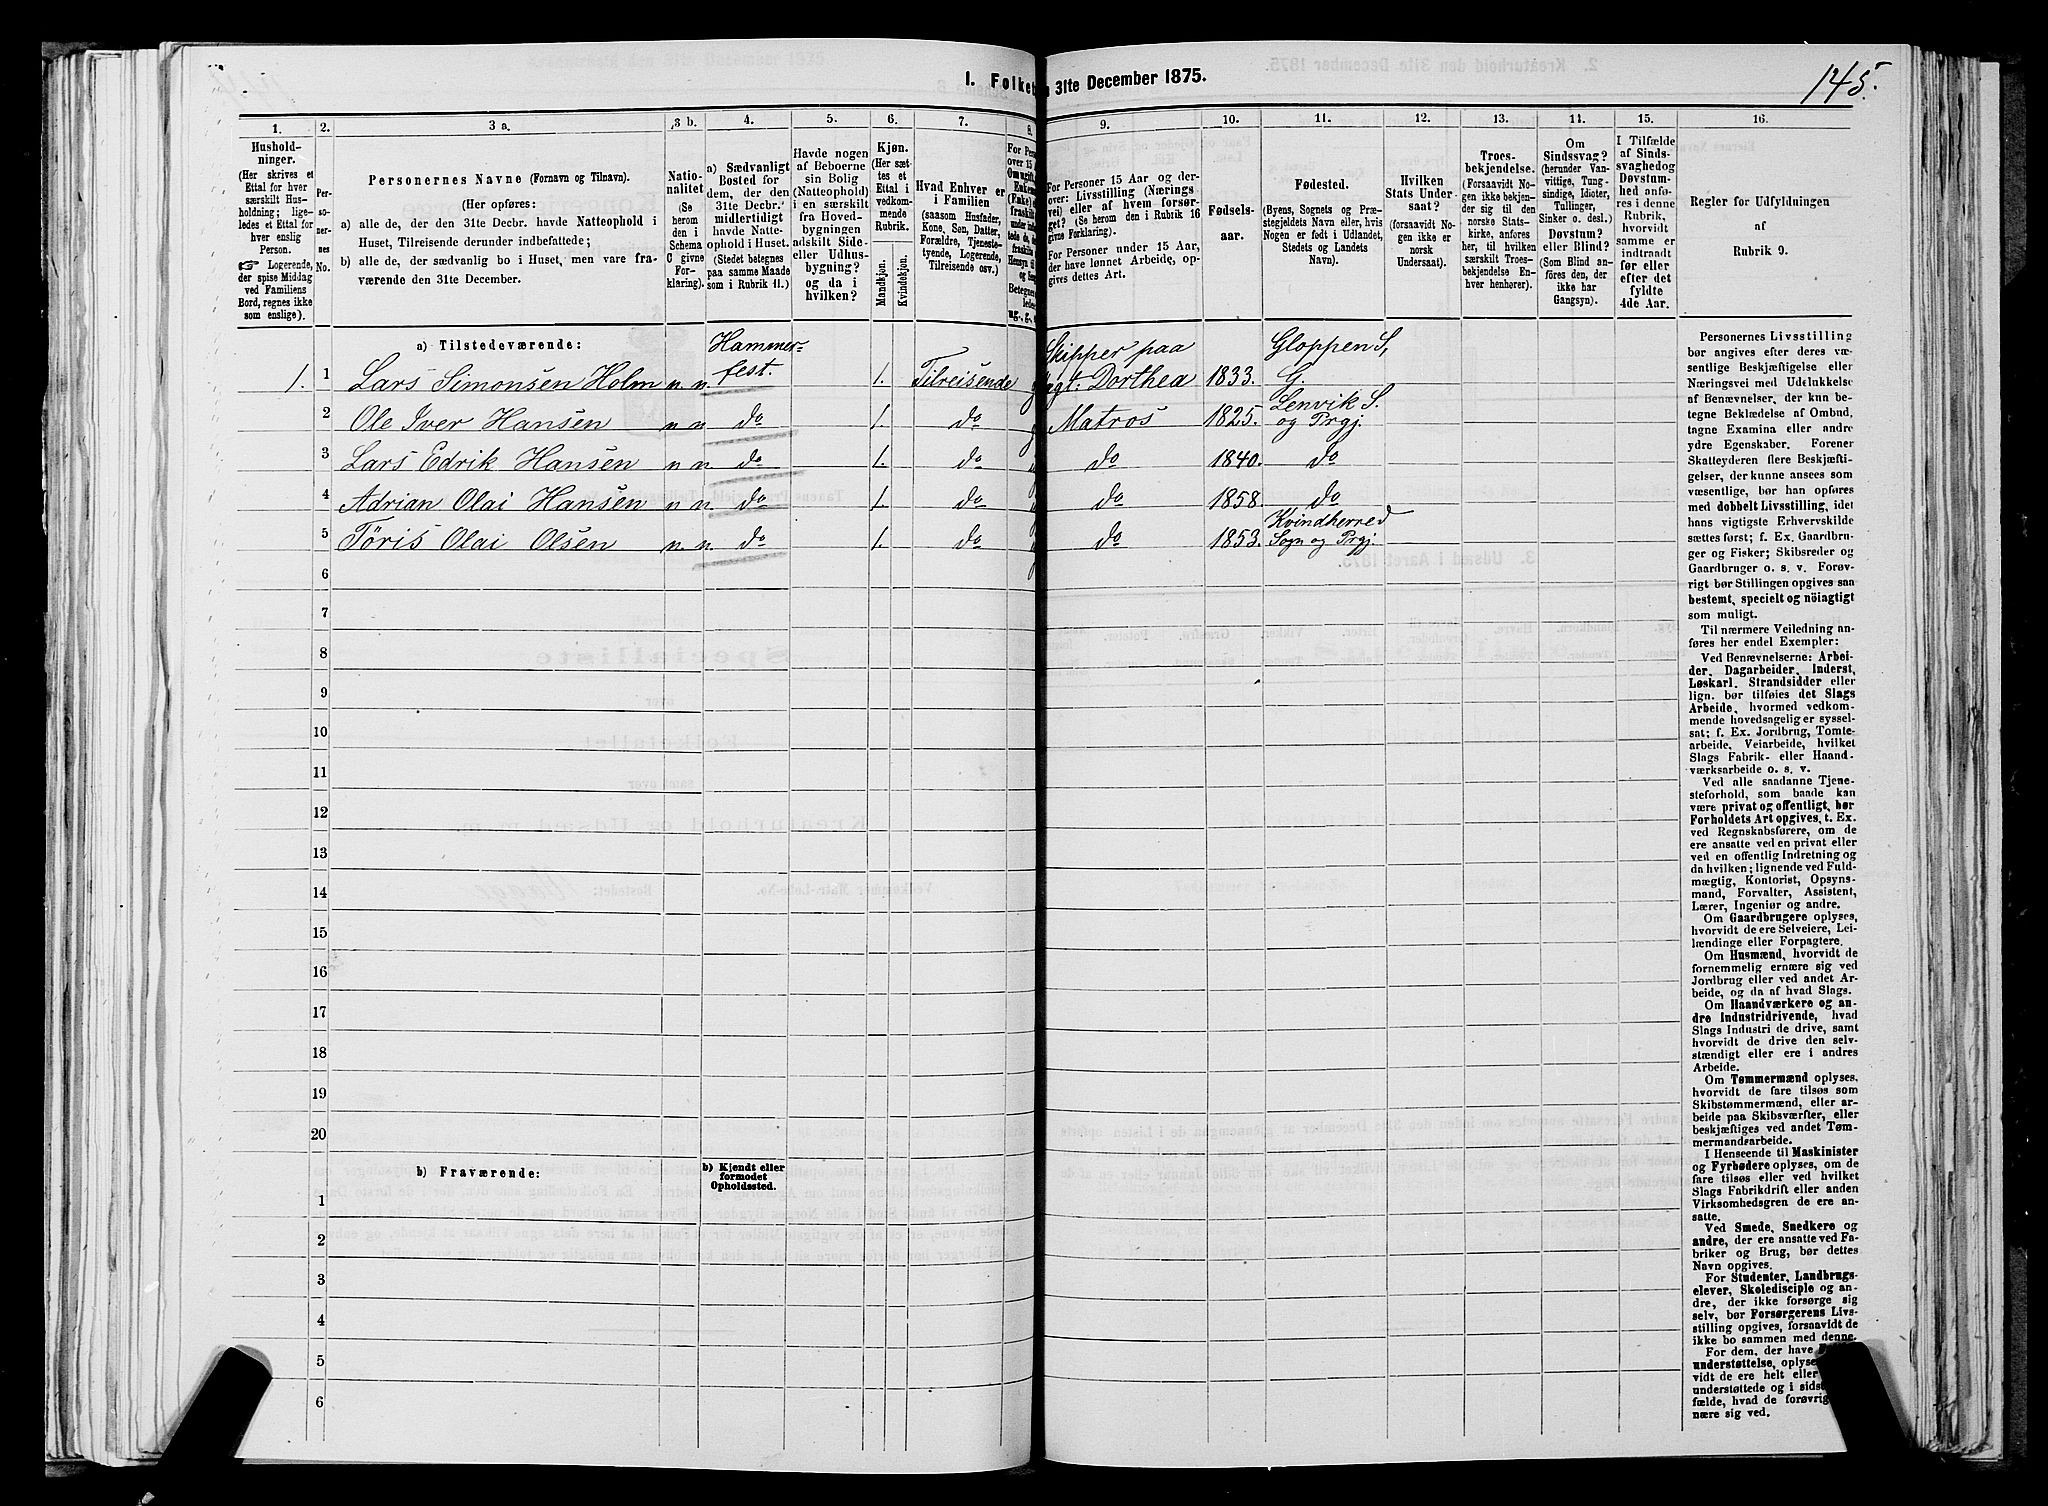 145.
I. Folket
n 31te December 1875.
1. 2. 3 a. 3 b. 4. 5. 6. 7. 8. 9. 10. 11. 12. 13. 14. 15. 16.
Hushold-
ninger.
(Her skrives et
Ettal for hver
særskilt Hus-
holdning; lige-
ledes et Ettal for
hver enslig
Person.
Logerende,
der spise Middag
ved Familiens
Bord, regnes ikke
som enslige).
Per-
so-
ner-
nes
No.
Personernes Navne (Fornavn og Tilnavn).
(Her opføres:
a) alle de, der den 31te Decbr. havde Natteophold i
Huset, Tilreisende derunder indbefattede;
b) alle de, der sædvanlig bo i Huset, men vare fra-
værende den 31te December.
Natio-
nalitet
(Se
herom
den i
Schema
C givne
For-
klaring).
a) Sædvanligt
Bosted for
dem, der den
31te Decbr.
midlertidigt
havde Natte-
ophold i Huset.
(Stedet betegnes
paa samme Maade
som i Rubrik 11.)
Havde nogen
af Beboerne
sin Bolig
(Natteophold)
i en særskilt
fra Hoved-
bygningen
adskilt Side-
eller Udhus-
bygning?
og da i
hvilken?
Kjøn.
(Her sæt-
tes et
Ettal i
vedkom-
mende
Rubrik.
Mandkjøn.
Kvindekjøn.
Hvad Enhver er
i Familien
(saasom Husfader,
Kone, Søn, Datter,
Forældre, Tjeneste-
tyende, Logerende,
Tilreisende osv.)
For Personer 15 Aar og der-
over: Livsstilling (Nærings-
vei) eller af hvem forsør-
get? (Se herom de i Rubrik 16
givne Forklaring).
For Personer under 15 Aar,
der have lønnet Arbeide, op-
gives dettes Art.
Fødsels-
aar.
Fødested.
(Byens, Sognets og Præ-
stegjeldets Navn eller, hvis
Nogen er født i Udlandet,
Stedets og Landets
Navn).
Hvilken
Stats Under-
saat?
(forsaavidt No-
gen ikke er
norsk
Undersaat).
Troes-
bekjendelse.
(Forsaavidt No-
gen ikke bekjen-
der sig til den
norske Stats-
kirke, anføres
her, til hvilken
særskilt Troes-
bekjendelse En-
hver henhører).
Om
Sindssvag?
(herunder Van-
vittige, Tung-
sindige, Idioter,
Tullinger,
Sinker o. desl.)
Døvstum?
eller Blind?
(Som Blind an-
føres den, der
ikke har
Gangsyn).
I Tilfælde
af Sinds-
svaghed og
Døvstum-
hed anfø-
res i denne
Rubrik,
hvorvidt
samme er
indtraadt
før eller
efter det
fyldte
4de Aar.
Regler for Udfyldningen
af
Rubrik 9.
a) Tilstedeværende:
1. 1 Lars Simonsen Holm n n. Hammer-
fest. 1. Tilreisende Skipper paa
Jægt. Dorthea 1833. Gloppen S,
G.
2 Ole Iver Hansen n n. do 1. do Matros 1825. Lenvik S.
og Prgj.
3 Lars Edrik Hansen n n. do 1. do do 1840. do
4 Adrian Olai Hansen n n. do 1. do do 1858. do
5 Tøris Olai Olsen n. n. do 1. do do 1853. Kvindherred
Sogn og Prgj.
6
7
8
9
10
11
12
13
14
15
16
17
18
19
20
b) Fraværende:
b) Kjendt eller
formodet
Opholdssted.
1
2
3
4
5
6
Personernes Livsstilling
bør angives efter deres væ-
sentlige Beskjæftigelse eller
Næringsvei med Udelukkelse
af Benævnelser, der kun be-
tegne Beklædelse af Ombud,
tagne Examina eller andre
ydre Egenskaber. Forener
Skatteyderen flere Beskjæfti-
gelser, der kunne ansees som
væsentlige, bør han opføres
med dobbelt Livsstilling, idet
hans vigtigste Erhvervskilde
sættes først; f. Ex. Gaardbru-
ger og Fisker; Skibsreder og
Gaardbruger o. s. v. Forøv-
rigt bør Stillingen opgives saa
bestemt, specielt og nöiagtigt
som muligt.
Til nærmere Veiledning an-
føres her endel Exempler:
Ved Benævnelserne: Arbei-
der, Dagarbeider, Inderst,
Løskarl, Strandsidder eller
lign. bør tilføies det Slags
Arbeide, hvormed vedkom-
mende hovedsagelig er syssel-
sat; f. Ex. Jordbrug, Tomte-
arbeide, Veiarbeide, hvilket
Slags Fabrik- eller Haand-
værksarbeide o. s. v.
Ved alle saadanne Tjene-
steforhold, som baade kan
være privat og offentligt, bør
Forholdets Art opgives, t. Ex.
ved Regnskabsførere, om de
ere ansatte ved en privat eller
ved en offentlig Indretning og
da hvilken; lignende ved Fuld-
mægtig, Kontorist, Opsyns-
mand, Forvalter, Assistent,
Lærer, Ingeniør og andre.
Om Gaardbrugere oplyses,
hvorvidt de ere Selveiere, Lei-
lændinge eller Forpagtere.
Om Husmænd, hvorvidt de
fornemmelig ernære sig ved
Jordbrug eller ved andet Ar-
beide, og da af hvad Slags.
Om Haandværkere og an-
dre Industridrivende, hvad
Slags Industri de drive, samt
hvorvidt de drive den selv-
stændigt eller ere i andres
Arbeide.
Om Tømmermænd oplyses,
hvorvidt de fare tilsøs som
Skibstømmermænd, eller ar-
beide paa Skibsværfter, eller
beskjæftiges ved andet Tøm-
mermandsarbeide.
I Henseende til Maskinister
og Fyrbødere oplyses, om de
fare tilsøs eller ved hvilket
Slags Fabrikdrift eller anden
Virksomhedsgren de ere an-
satte.
Ved Smede, Snedkere og
andre, der ere ansatte ved Fa-
briker og Brug, bør dettes
Navn opgives.
For Studenter, Landbrugs-
elever, Skoledisciple og an-
dre, der ikke forsørge sig
selv, bør Forsørgerens Livs-
stilling opgives, forsaavidt de
ikke bo sammen med denne.
For dem, der have
understøttelse, oplyse
vidt de ere helt eller
understøttede og i sidst
fælde, hvad de forøvrig
nære sig ved.